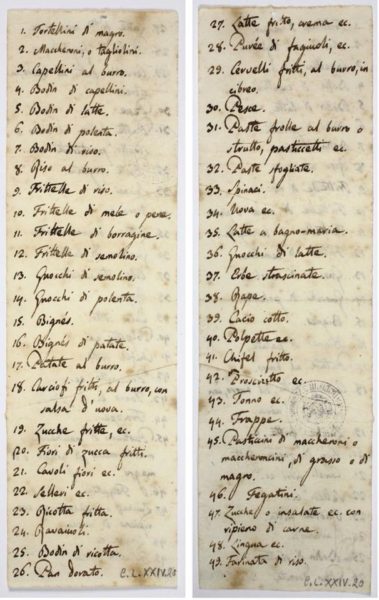 1. Tortellini di magro.
2. Maccheroni, o tagliolini.
3. Capellini al burro.
4. Bodin di capellini.
5. Bodin di latte.
6. Bodin di polenta.
7. Bodin di riso.
8. Riso al burro.
9. Frittelle di riso.
10. Frittelle di mele o pere.
11. Frittelle di borragine.
12. Frittelle di semolino.
13. Gnocchi di semolino.
14. Gnocchi di polenta.
15. Bignès.
16. Bignès di patate.
17. Patate al burro.
18. Carciofi fritti, al burro, con
salsa d'uova.
19. Zucche fritte, ec.
20. Fiori di zucca fritti.
21. Cavoli fiori ec.
22. Selleri ec.
23. Ricotta fritta.
24. Ravaiuoli.
25. Bodin di ricotta.
26. Pan dorato.
C.L.XXIV.20
27. Latte fritto, crema ec.
28. Purée di fagiuoli, ec.
29. Cervelli fritti, al burro, in
cibreo.
30. Pesce.
31. Paste frolle al burro o
strutto, pasticcetti ec.
32. Paste sfogliate.
33. Spinaci.
34. Uova ec.
35. Latte a bagno-maria.
36. Gnocchi di latte.
37. Erbe strascinate.
38. Rape.
39. Cacio cotto.
40. Polpette ec.
41. Chifel fritto.
42. Prosciutto ec.
43. Tonno ec.
44. Frappe.
45. Pasticcini di maccheroni o
maccheroncini, di grasso o di
magro.
46. Fegatini.
47. Zucche o insalate ec. con
ripieno di carne.
48. Lingua ec.
49. Farinata di riso.
C.L.XXIV.20